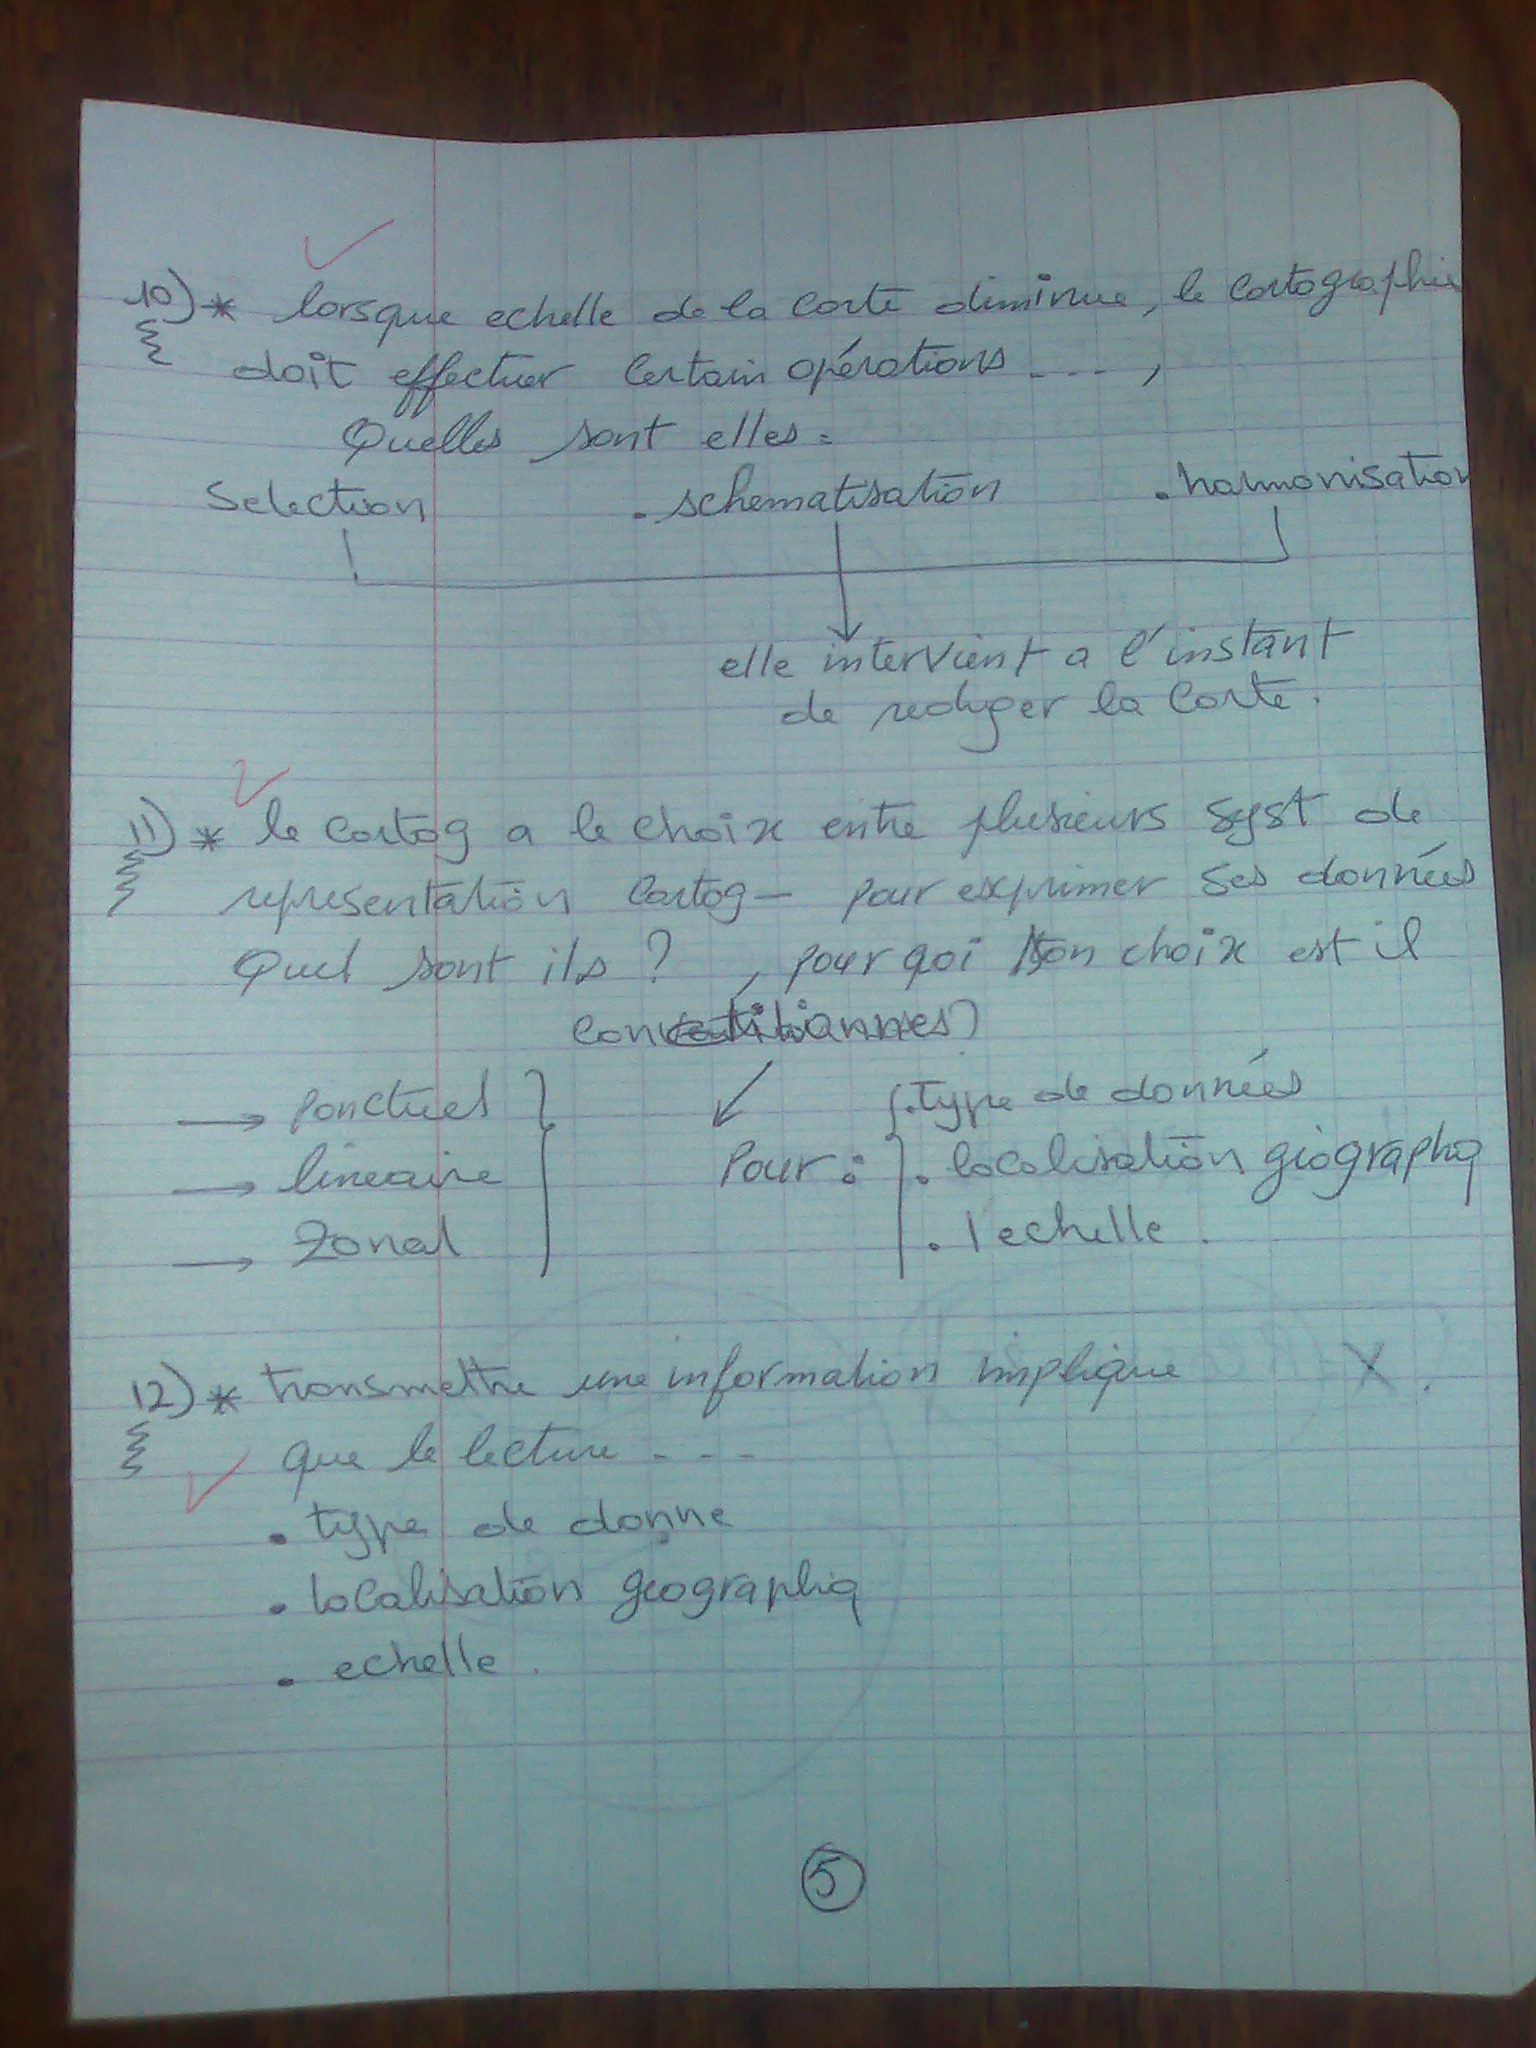 10) * lorsque echelle de la carte diminue, le cartographie
doit effectuer certain opérations - - - ,
Quelles sont elles =
Selection . schematisation . harmonisation
elle intervient a l'instant
de rediger la carte .
11) * le cartog a le choix entre plusieurs syst de
representation cartog - pour exprimer ses données
Quel sont ils ? , pour qoi son choix est il
→ ponctuel . type de données
→ lineaire Pour : . localisation géographiq
→ Zonal . l'echelle .
12) * transmettre une information implique X .
que le lecture - - -
. type de donne
. localisation géographiq
. echelle .
5